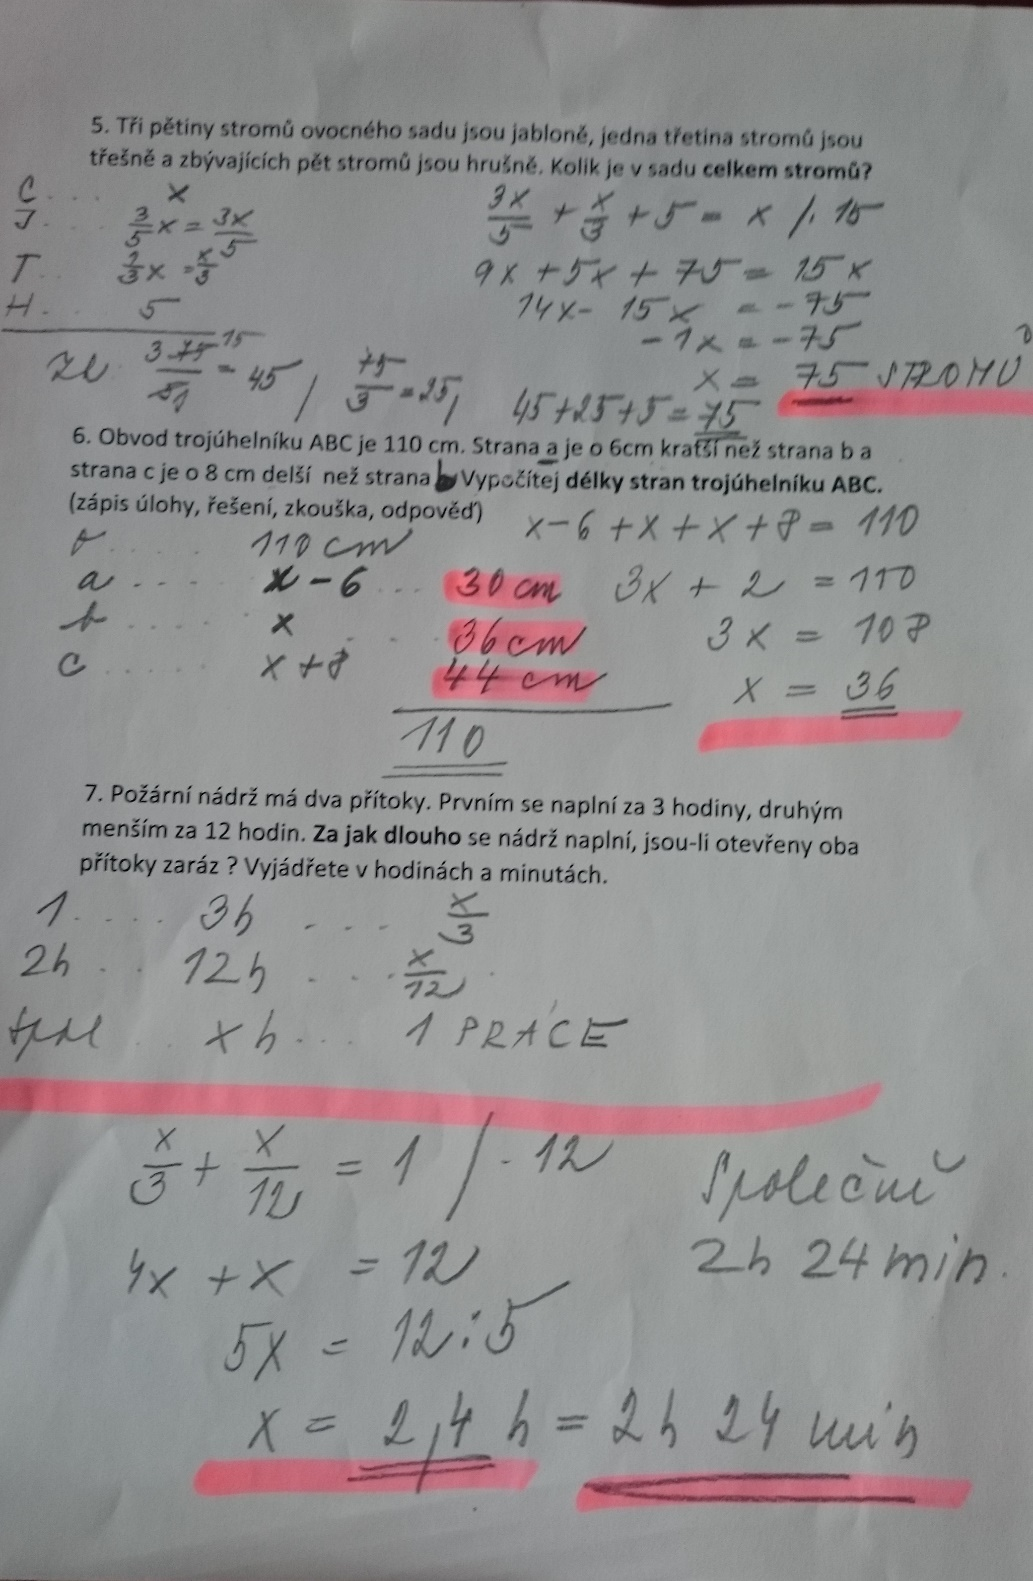 5. Tři pětiny stromů ovocného sadu jsou jabloně, jedna třetina stromů jsou
třešně a zbývajících pět stromů jsou hrušně. Kolik je v sadu celkem stromů?
C.... x
J.... 3/5 x = 3x/5
T... 1/3 x = x/3
H... 5
3x/5 + x/3 + 5 = x /. 15
9x + 5x + 75 = 15x
14x - 15x = -75
-1x = -75
x = 75 STROMŮ
3.75 15/5 1 = 45 / 75/3 = 25, 45+25+5=75
6. Obvod trojúhelníku ABC je 110 cm. Strana a je o 6cm kratší než strana b a
strana c je o 8 cm delší než strana b. Vypočítej délky stran trojúhelníku ABC.
(zápis úlohy, řešení, zkouška, odpověď)
σ..... 110 cm
a.... x-6... 30 cm
b..... x... 36 cm
c..... x+8 44 cm
110
x-6+x+x+8=110
3x + 2 = 110
3x = 108
x = 36
7. Požární nádrž má dva přítoky. Prvním se naplní za 3 hodiny, druhým
menším za 12 hodin. Za jak dlouho se nádrž naplní, jsou-li otevřeny oba
přítoky zaráz ? Vyjádřete v hodinách a minutách.
1..... 3h .... x/3
2h... 12h.... x/12
spol.. xh.... 1 PRÁCE
x/3 + x/12 = 1 /.12
4x + x = 12
5x = 12:5
x = 2,4 h = 2h 24 min
Společně
2h 24 min.